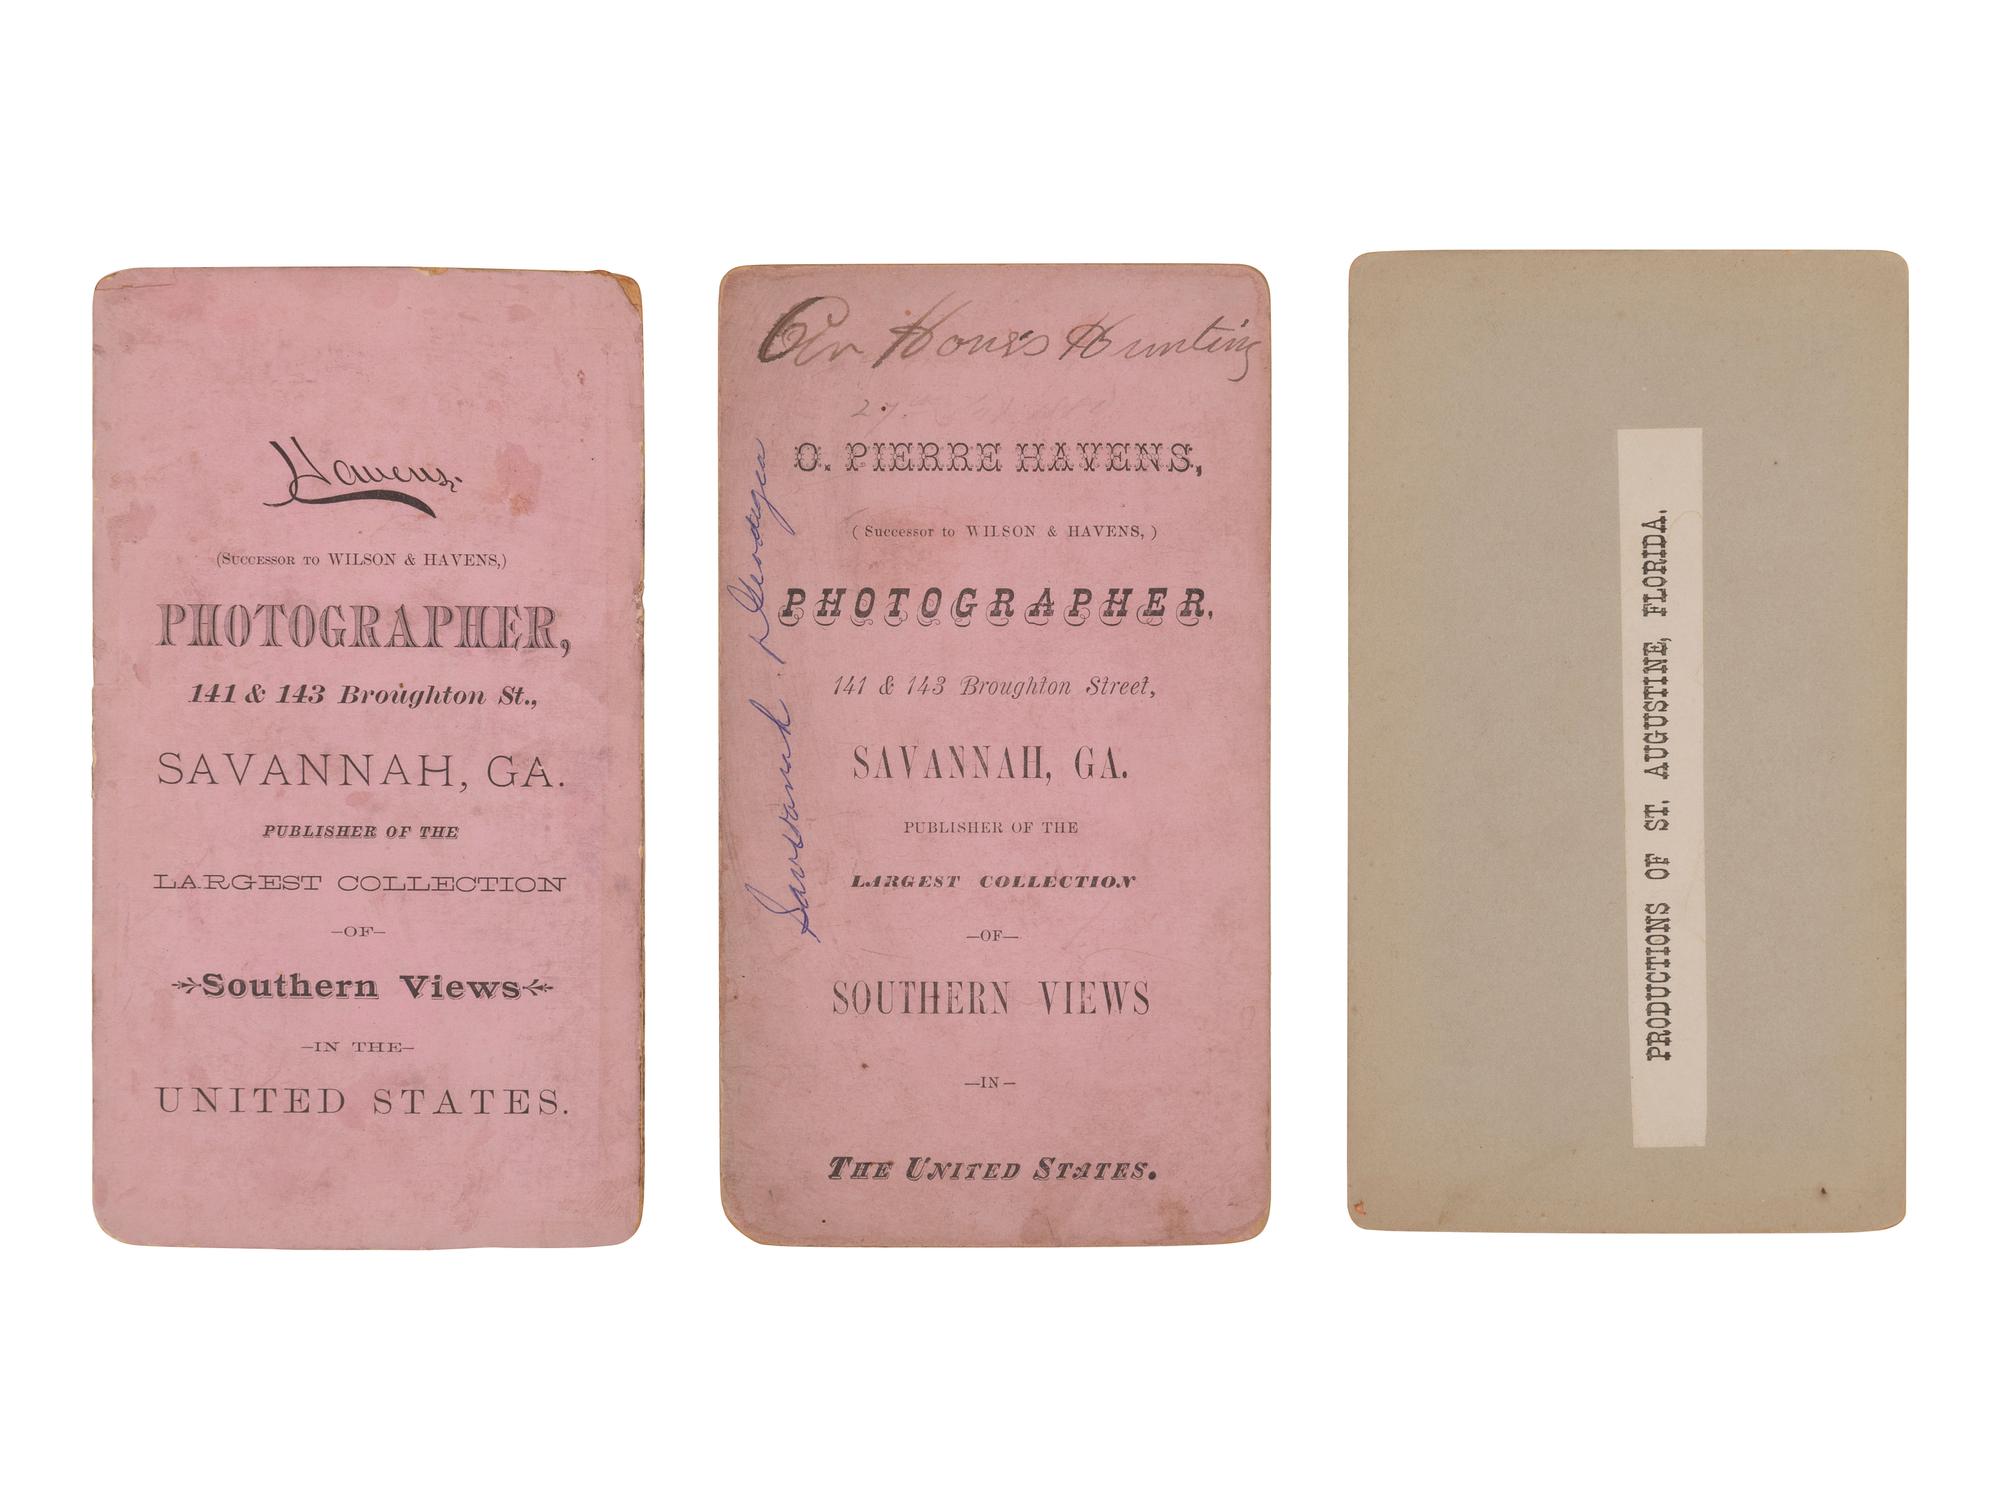 Havens.
(Successor to WILSON & HAVENS,)
PHOTOGRAPHER,
141 & 143 Broughton St.,
SAVANNAH, GA.
PUBLISHER OF THE
LARGEST COLLECTION
—OF—
Southern Views
—IN THE—
UNITED STATES.
Hunting
27
O. PIERRE HAVENS,
(Successor to WILSON & HAVENS,)
PHOTOGRAPHER,
141 & 143 Broughton Street,
SAVANNAH, GA.
PUBLISHER OF THE
LARGEST COLLECTION
—OF—
SOUTHERN VIEWS
—IN—
THE UNITED STATES.
Savannah Georgia
PRODUCTIONS OF ST. AUGUSTINE, FLORIDA.